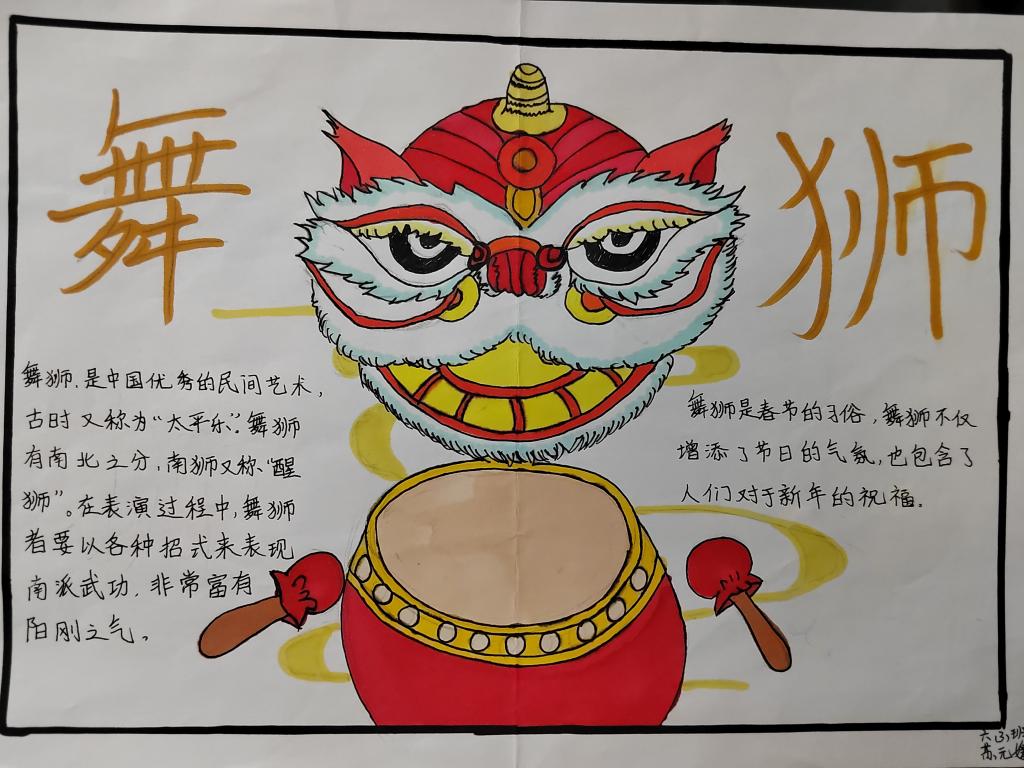 舞狮
舞狮.是中国优秀的民间艺术,
古时又称为“太平乐”.舞狮
有南北之分,南狮又称“醒
狮”。在表演过程中,舞狮
者要以各种招式来表现
南派武功.非常富有
阳刚之气。
舞狮是春节的习俗,舞狮不仅
增添了节日的气氛,也包含了
人们对于新年的祝福.
六(3)班
苏元